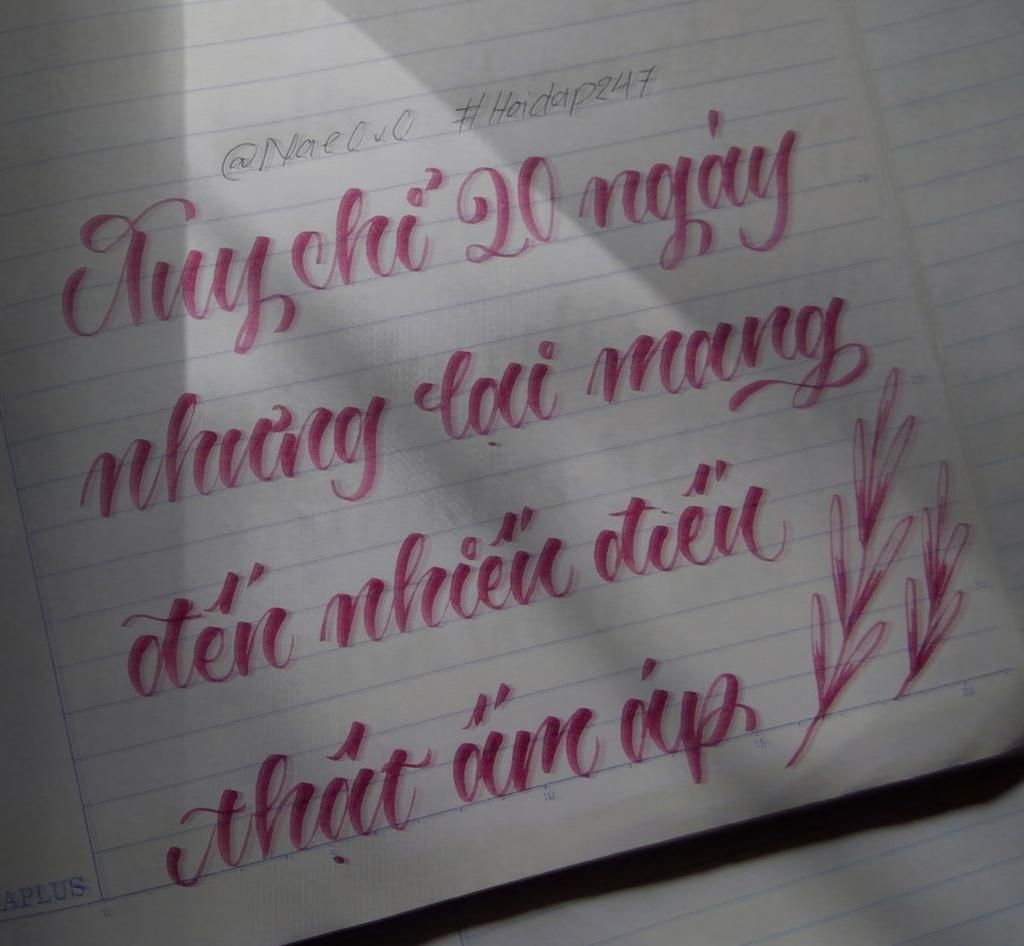 @Nae0v0 #Hoidap247
Tuy chỉ 20 ngày
nhưng lại mang
đến nhiều điều
thật ấm áp
APLUS